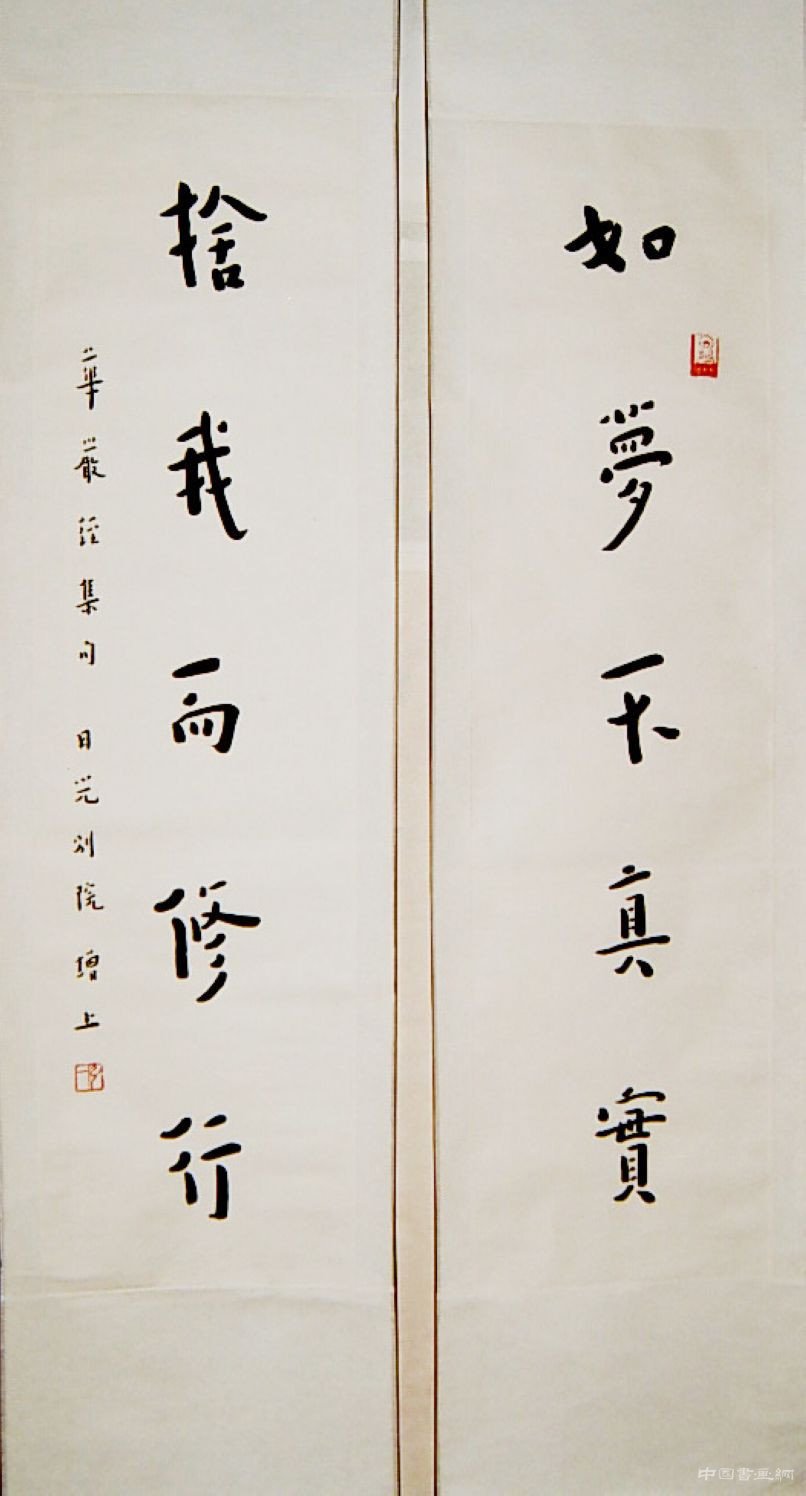 如夢不真實
捨我而修行
華嚴經集句 日光別院 增上
中国書画網